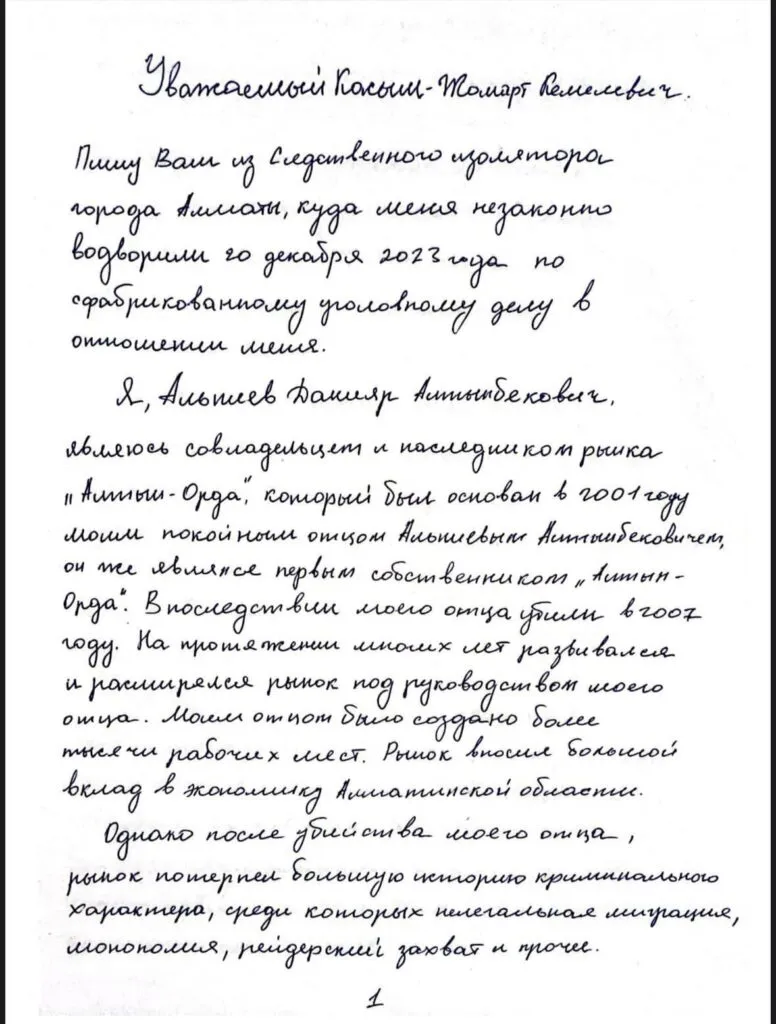 Уважаемый Касым-Жомарт Кемелевич.
Пишу Вам из Следственного изолятора
города Алматы, куда меня незаконно
водворили 20 декабря 2023 года по
сфабрикованному уголовному делу в
отношении меня.
Я, Альпиев Данияр Алтынбекович,
являюсь совладельцем и наследником рынка
„Алтын-Орда", который был основан в 2001 году
моим покойным отцом Альпиевым Алтынбековичем,
он же являлся первым собственником „Алтын-
Орда". Впоследствии моего отца убили в 2007
году. На протяжении многих лет развивался
и расширялся рынок под руководством моего
отца. Моим отцом было создано более
тысячи рабочих мест. Рынок вносил большой
вклад в экономику Алматинской области.
Однако после убийства моего отца,
рынок потерпел большую историю криминального
характера, среди которых нелегальная миграция,
монополия, рейдерский захват и прочее.
1